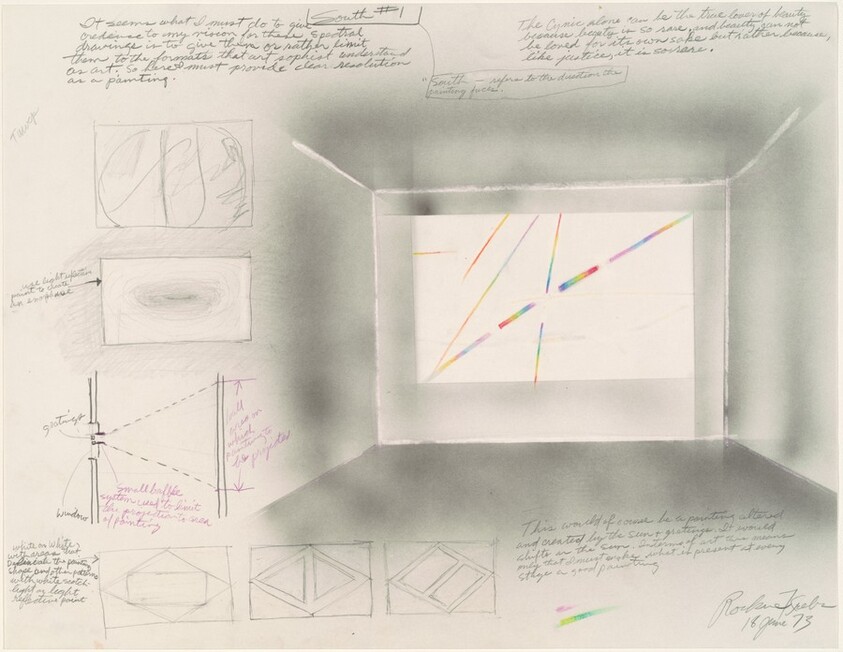 South #1
It seems what I must do to give
credense to my vision for these spectral
drawings is to give them or rather limit
them to the formats that art sophist understand
as art. So here I must provide clear resolution
as a painting.
The Cynic alone can be the true lover of beauty
because beauty is so rare, and beauty can not
be loved for its own sake but rather because,
like justice, it is so rare.
"South" — refers to the direction the
painting faces.
use light
paint to create
gratings
window
wall
area on
which
painting to
be projected
Small baffle
system used to limit
the projection to area
of painting
white on white
with areas that
the painting
shape and other patterns
with white scotch-
light or light
reflective paint
This would of course be a painting altered
and created by the sun & gratings. It would
shift as the sun. In terms of art this means
only that I must make what is present at every
stage a good painting
Rockne Krebs
18 June 73